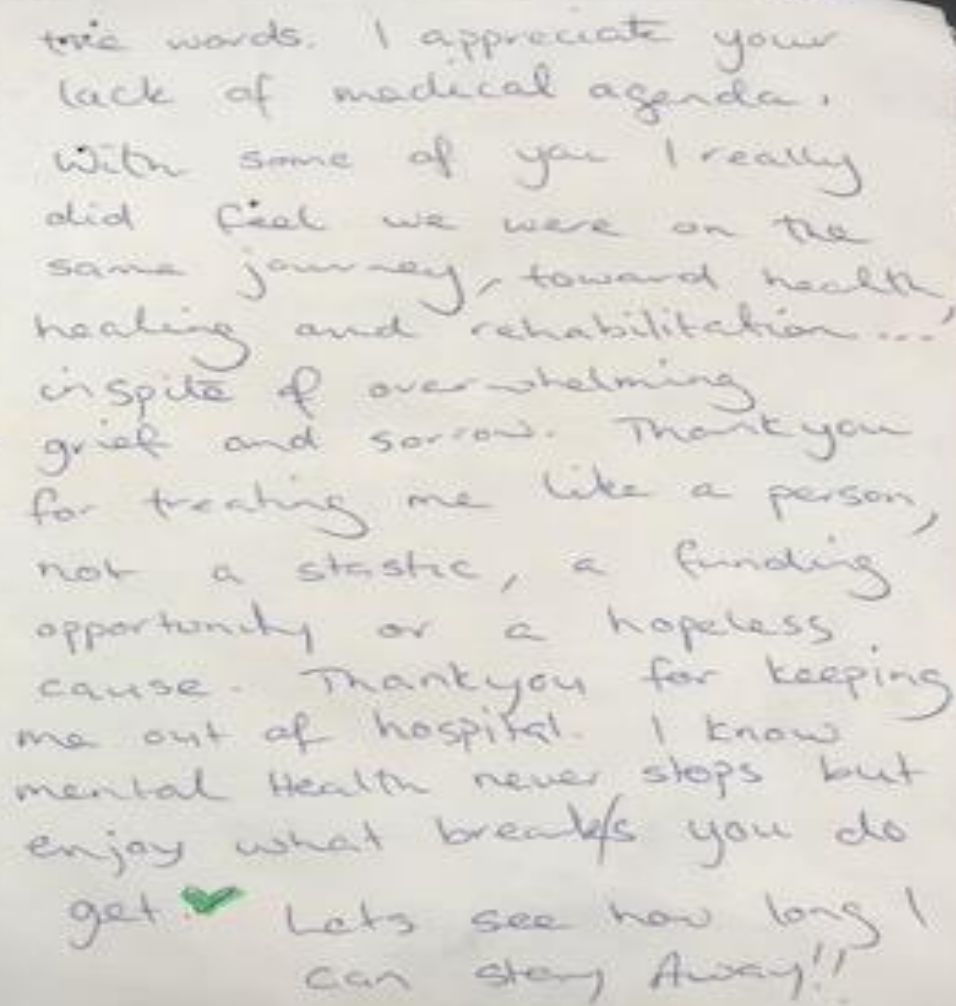 true words. I appreciate your
lack of medical agenda.
With some of you I really
did feel we were on the
same journey, toward health,
healing and rehabilitation...
inspite of overwhelming
grief and sorrow. Thankyou
for treating me like a person,
not a stastic, a funding
opportunity or a hopeless
cause. Thankyou for keeping
me out of hospital. I know
mental Health never stops but
enjoy what break/s you do
get. Lets see how long I
can stay Away!!